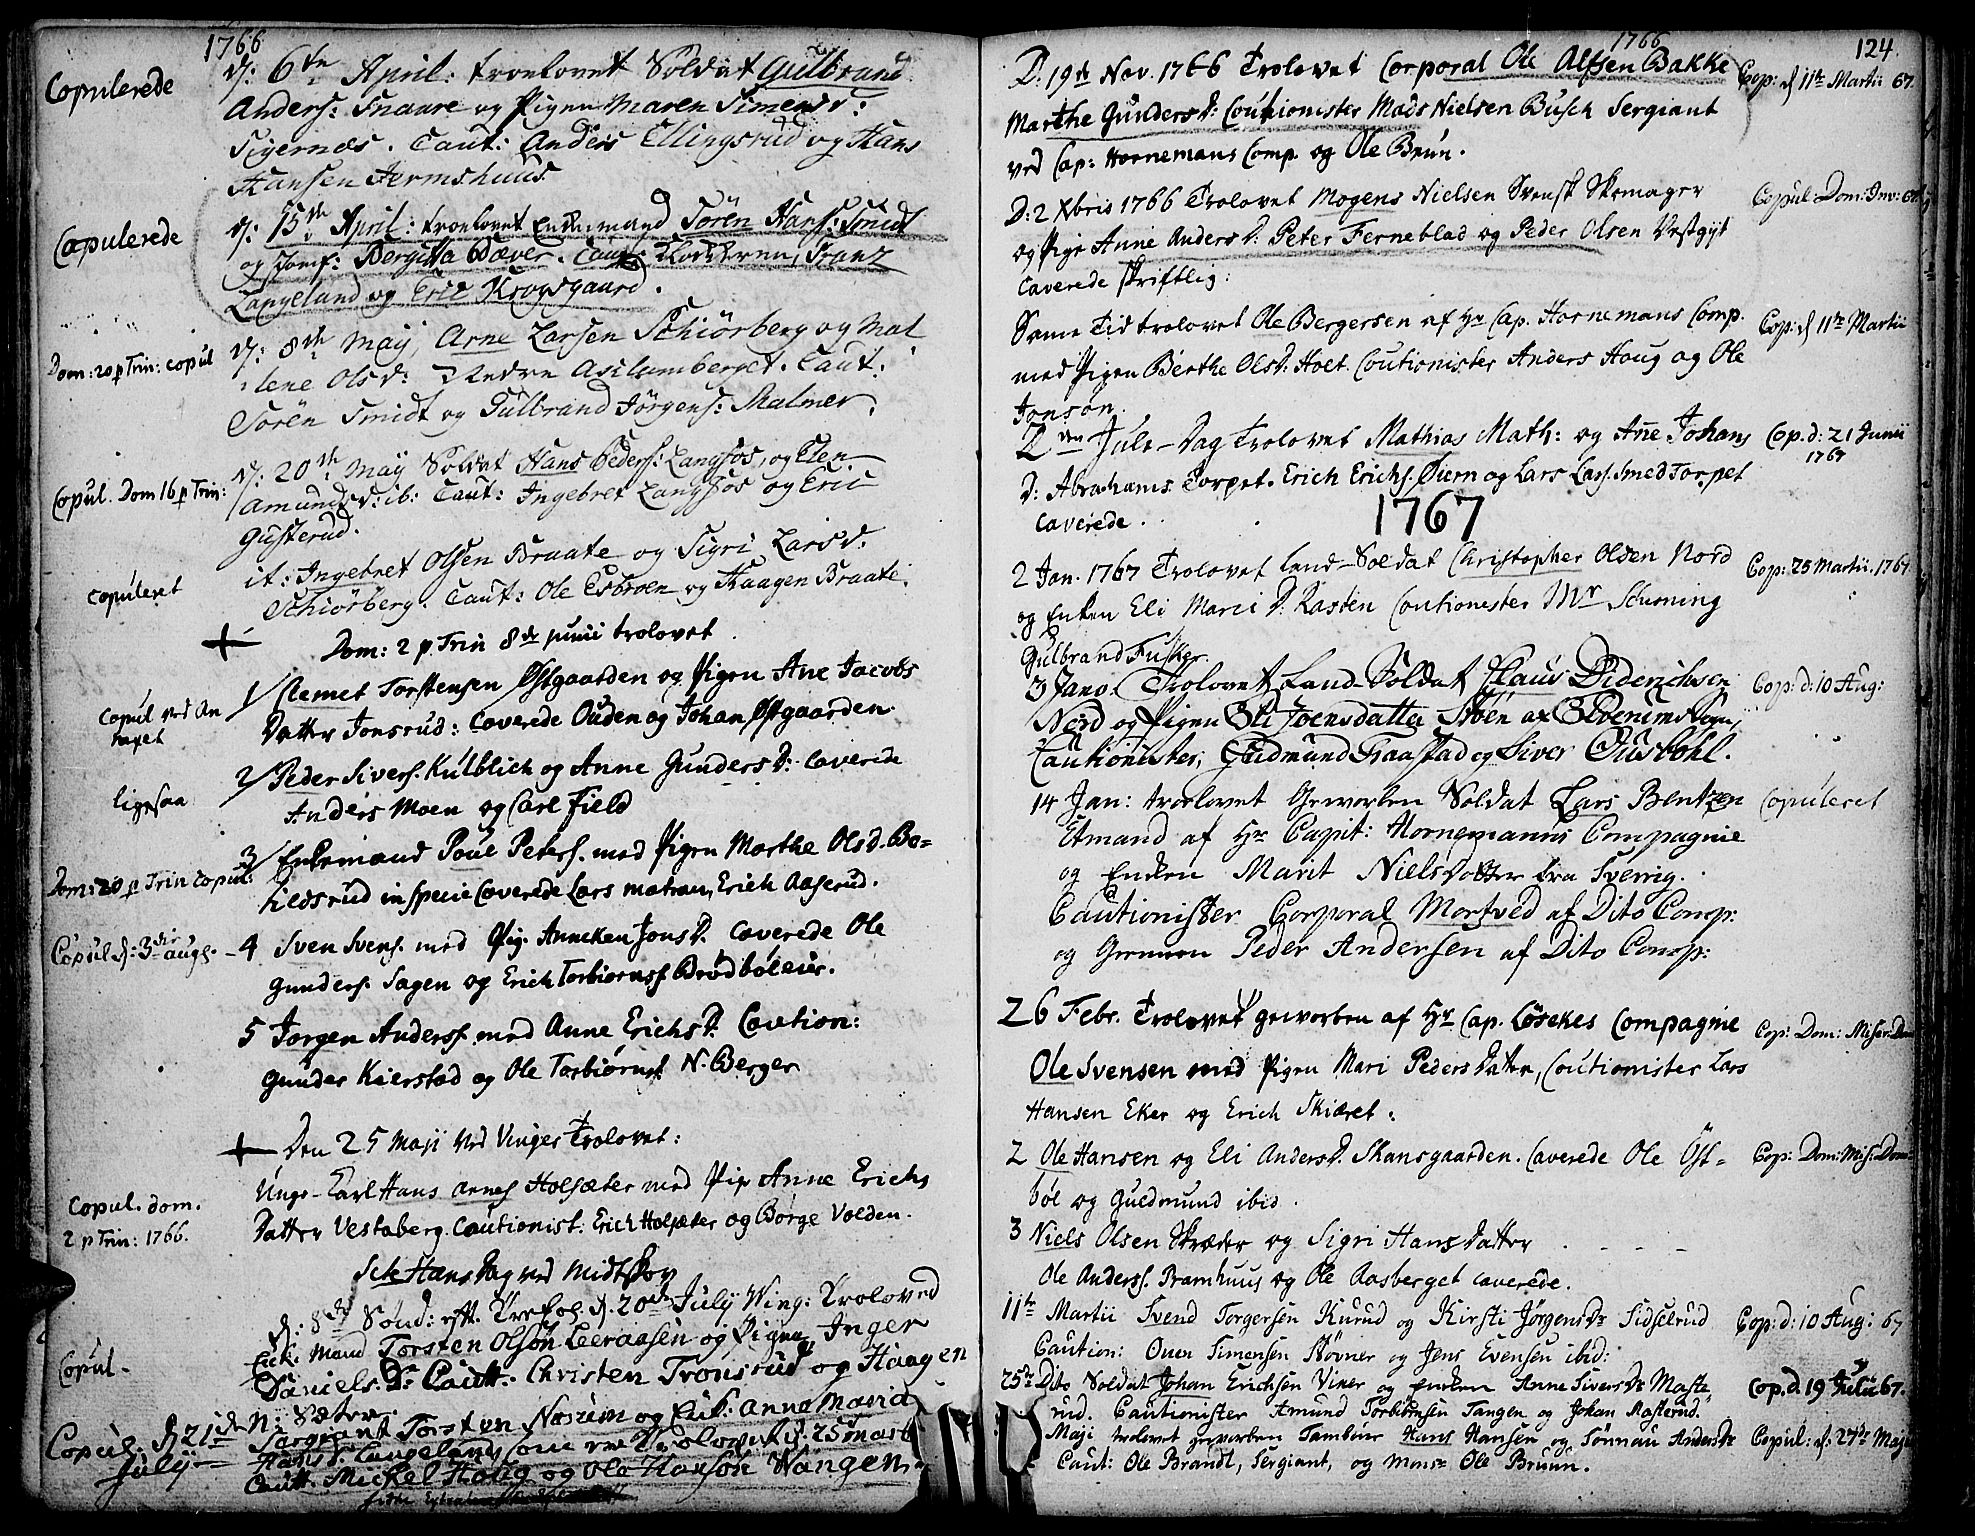 1766
Copulerede
d: 6te April: troelovet Soldat Gulbrand
Anders: Snaare og Pigen Maren Simensd:
Sigernæs. Caut: Anders Ellingsrud og Hans
Hansen Jermshuus
Copulerede
d: 15th April: troelovet Enkemand Sören Hans: Smidt
og Jomf: Bergitta Bæver. Caut: Frantz
Langeland og Eric Krogsgaard.
Dom: 20 p Trin: copul
d: 8th May, Arne Larsen Schiörberg og Mal
lene Olsd: Caut:
Sören Smidt og Gulbrand Jörgens: Malmer.
Copul. Dom 16 p Trin:
d: 20th May Soldat Hans Peders: Langsjös, og Elen
Amundsd: ib: Caut: Ingebret Langsjös og Eric
Gusterud.
copuleret
it: Ingebret Olsen Braate og Sigri Larsd:
Schiörberg. Caut: Ole Esbroen og Haagen Braate.
Dom: 2 p. Trin 8de junii trolovet
Copul ved An
nexet
1/ Clemet Torstensen Østgaarden og Pigen Ane Jacobs
Datter Jonsrud: Caverede Ouden og Johan Østgaarden
ligesaa
2/ Peder Sivers. Kulblich og Anne Gunders D: Caverede
Anders Moen og Carl Field
Dom: 20 p Trin copul:
3/ Enkemand Poul Peters. med Pigen Marthe Olsd. Bo=
hldsrud in specie Caverede Lars matrau, Erich Aaserud.
Copul d: 3die augs.
4 Sven Svens. med Pig. Anneken Jons D. Caverede Ole
Gunders. Sagen og Erich Torbiörns. Brödböleier.
5 Jörgen Anders. med Anne Erichs D. Caution:
Gunder Kierstad og Ole Torbiörns. N. Berger
Den 25 Maji ved Vinger Trolovet:
Copul. dom.
2 p Trin: 1766.
Unge-Carl Hans Arnes. Holsæter med Pig Anne Erichs
Datter Vestaberg. Cautionist: Erich Holsæter og Börge Volden.
Scte Hans Dag ved Midtskov
d: 8de Sönd: eft. d. 20de July Wing: Troloved
Copul-
Enke Mand Torsten Olsön Leeraasen og Pigen Inger
Daniels D: Caut: Christen Tronsrud og Haagen
N: Sæter.
Copul. d 21de
July
Sargeant Torsten Næsum og Enk: Anna Maria
Hansd. Langeland, som var Trolovet d. 25 mart
Caut: Mickel Haug og Ole Hansön Wangen
1766
124
D. 19de Nov. 1766 Trolovet Corporal Ole Alfsen Bakke
Cop: d 11te Martii 67
Marthe Gunders D: Coutionister Mads Nielsen Busch Sergiant
ved Cap: Hornemans Comp. og Ole Brun.
D: 2 Xbris 1766 Trolovet Mogens Nielsen Svensk Skomager
Copul Dom: Inv: 67
og Pige Anne Anders D: Peter Ferneblad og Peder Olsen Vestgyt
Caverede skriftlig:
Same Tid trolovet Ole Bergersen af Hr Cap. Hornemans Comp.
Cop: d 11te Martii
med Pigen Berthe Olsd: Holt. Coutionister Anders Houg og Ole
Jonson.
2den Jule-Dag Trolovet Mathias Math: og Ane Johans
Cop. d: 21 Junii
1767
D: Abrahams Torpet. Erich Erichs. Øiern og Lars Lars. Smedtorpet
Caverede.
1767
2 Jan. 1767 Trolovet Land-Soldat Christopher Olsen Nord
Cop: 25 Martii. 1767
og Enken Eli Marii D: Rasten Coutionister Mr Scheming
Gulbrand Fusker.
3 Jano. Trolovet Land-Soldat Claus Diderichsen
Cop: d: 10 Aug:
Nord og Pigen Eli Joensdatter Stöen af Elverums Sogn,
Cautionister, Gudmund Fraastad og Siver Ousböhl.
14 Jan: troelovet Geworben Soldat Lars Bentzen
Copuleret
Etmand af Hr Capit: Hornemanns Compagnie
og Enken Marit Nielsdatter fra Sverrig.
Cautionister Corporal Mortved af Dito Comp:
og Peder Andersen af Dito Comp:
26 Febr. Trolovet geworben af Hr Cap. Lösekes Compagnie
Cop: Dom: Miser: Dom
Ole Svensen med Pigen Mari Peders Datter, Coutionister Lars
Hansen Eker og Erich Skiæret:
2 Ole Hansen og Eli Anders D. Skansgaarden. Caverede Ole Öst=
Cop: Dom: Mis: Dom
böl og Guldmund ibid.
3 Niels Olsen Skræder og Sigri Hans Datter
Ole Anders. Bramhuus og Ole Aasberget caverede.
11te Martii Svend Torgersen Kurud og Kirsti Jørgensdr Sidselrud
Cop: d: 10 Aug: 67
Caution: Ouen Simensen Støvner og Jens Evensen ibid:
25de Dito Soldat Johan Erichsen Viker og Enken Anne Sivers Dr Maste
Cop. d. 19 Julii 67.
rud. Cautionister Amund Torbiörnsen Tangen og Johan Masterud.
Maji trolovet geworben Tambour Hans Hansen og Sönnau Andersdr
Copul: d: 27de Maji
Caut: Ole Brandt, Sergiant, og Monsr Ole Bruun.